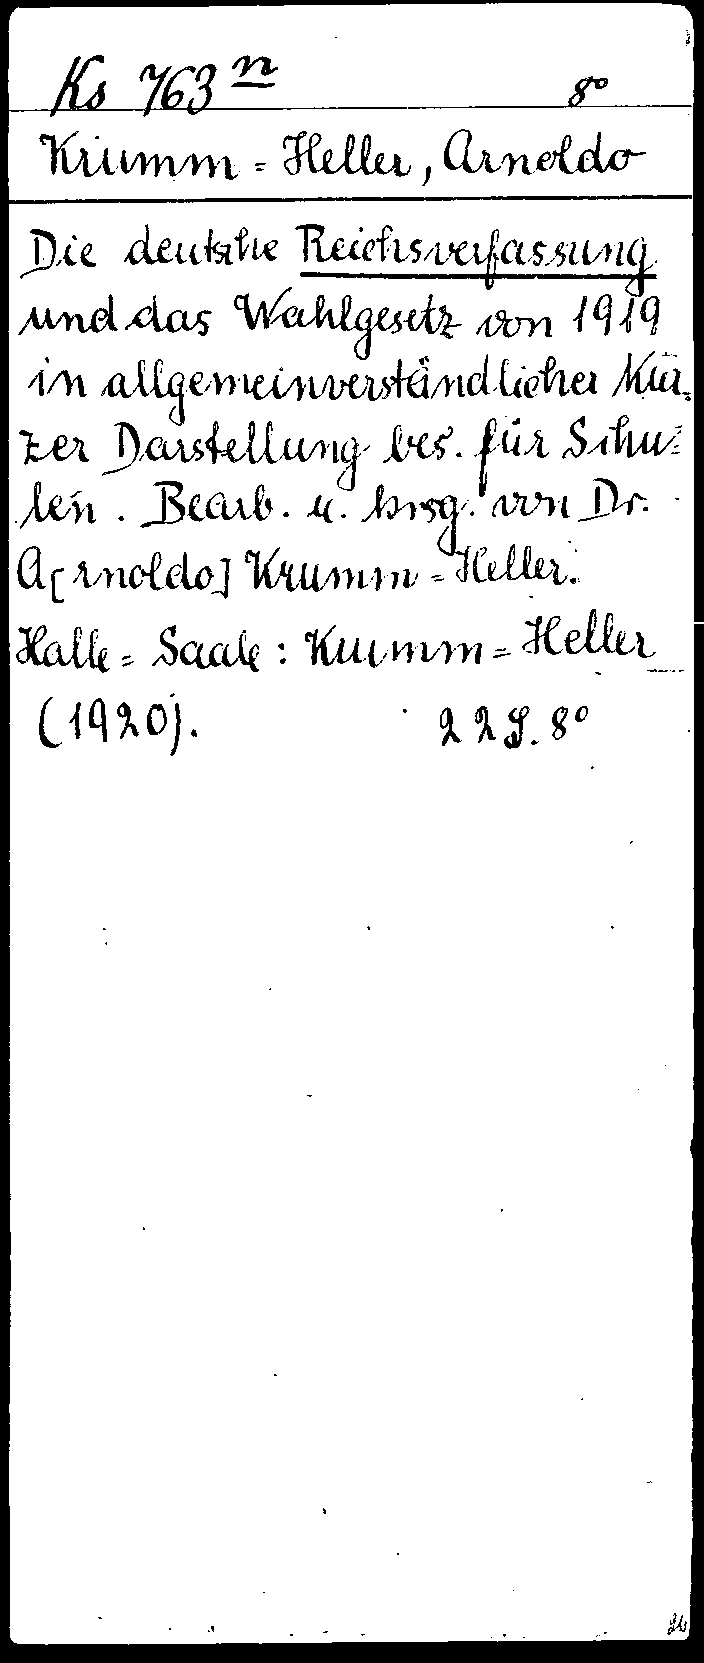 Ks 763 n 8°
Krumm=Heller, Arnoldo
Die deutsche Reichsverfassung
und das Wahlgesetz von 1919
in allgemeinverständlicher kur=
zer Darstellung bes. für Schu=
len. Bearb. u. hrsg. von Dr.
A[rnoldo] Krumm=Heller.
Halle=Saale: Krumm=Heller
(1920). 22 S. 8°